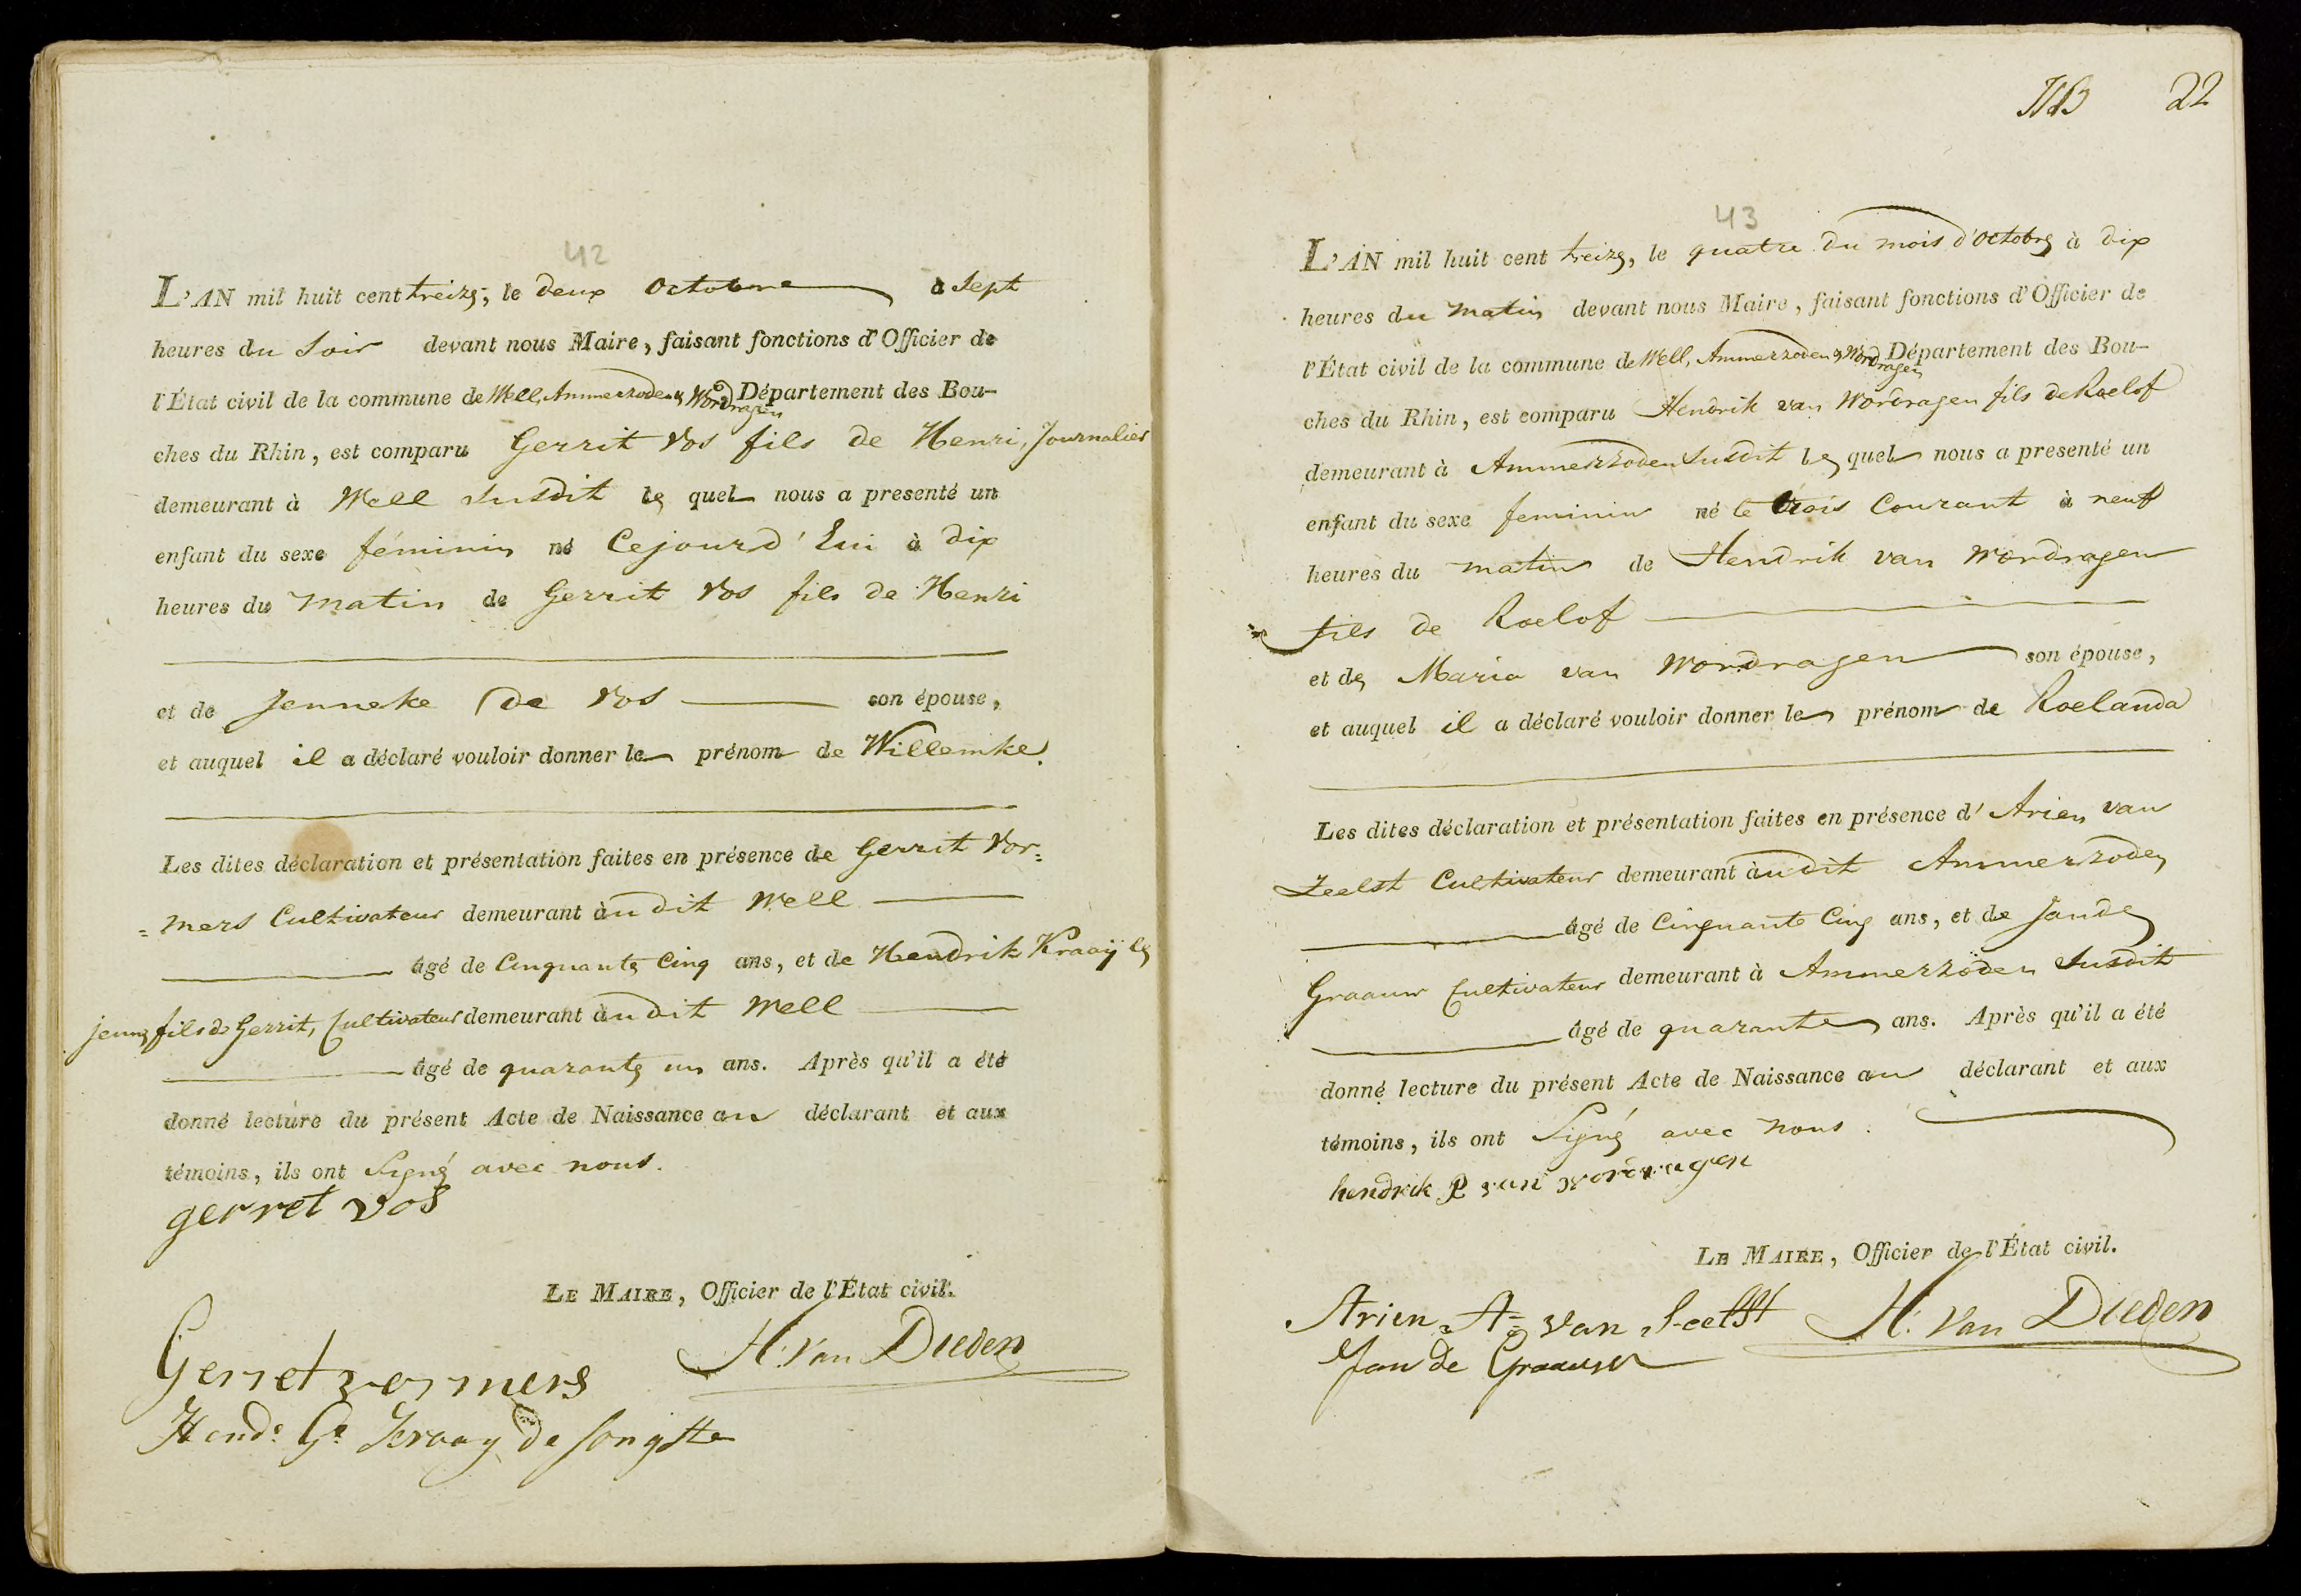 42
L'AN mil huit cent treize, le deux Octobre à Sept
heures du Soir devant nous Maire, faisant fonctions d'Officier de
l'État civil de la commune de Well, Ammerzoden & Wordragen Département des Bou-
ches du Rhin, est comparu Gerrit Vos fils de Henri, Journalier
demeurant à Well Susdit le quel nous a presenté un
enfant du sexe féminin né Cejourd'hui à dix
heures du matin de Gerrit Vos fils de Henri
et de Jenneke de Vos son épouse,
et auquel il a déclaré vouloir donner le prénom de Willemke.
Les dites déclaration et présentation faites en présence de Gerrit Vor=
=mers Cultivateur demeurant àudit Well
âgé de Cinquante Cinq ans, et de Hendrik Kraaij le
jeune fils de Gerrit, Cultivateur demeurant àudit Well
âgé de quarante un ans. Après qu'il a été
donné lecture du présent Acte de Naissance au déclarant et aux
témoins, ils ont Signé avec nous.
gerret vos
LE MAIRE, Officier de l'État civil.
H. Van Dieden
Gerret vormers
Hend. G. Kraay de Jongste
22
43
L'AN mil huit cent treize, le quatre du mois d'Octobre à dix
heures du matin devant nous Maire, faisant fonctions d'Officier de
l'État civil de la commune de Well, Ammerzoden & Wordragen Département des Bou-
ches du Rhin, est comparu Hendrik van Wordragen fils de Roelof
demeurant à Ammerzoden Susdit le quel nous a presenté un
enfant du sexe feminin né le trois Courant à neuf
heures du matin de Hendrik van Wordragen
fils de Roelof
et de Maria van Wordragen son épouse,
et auquel il a déclaré vouloir donner le prénom de Roelanda
Les dites déclaration et présentation faites en présence d'Arien van
Zeelst Cultivateur demeurant àudit Ammerzoden
âgé de Cinquante Cinq ans, et de Jan de
Graauw Cultivateur demeurant à Ammerzöden Susdit
âgé de quarante ans. Après qu'il a été
donné lecture du présent Acte de Naissance au déclarant et aux
témoins, ils ont Signé avec nous.
hendrik R van wordragen
LE MAIRE, Officier de l'État civil.
Arien A= van Seelst H. Van Dieden
Jan de Graauw